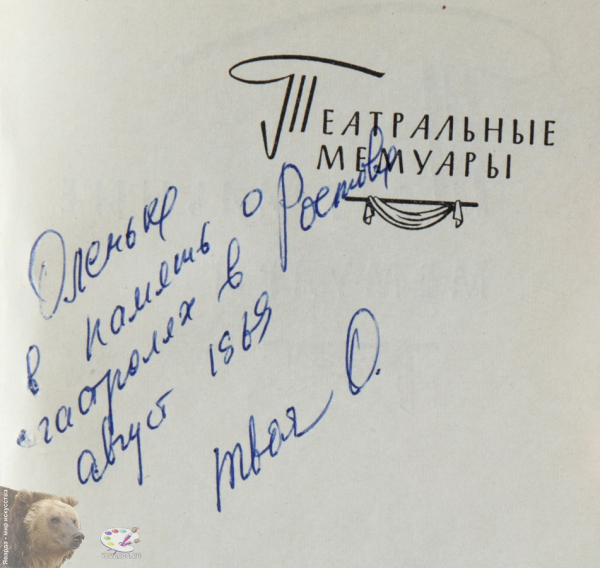 ТЕАТРАЛЬНЫЕ
МЕМУАРЫ
Оленьке
в память о
гастролях в Ростове
август 1969
твоя О.
Яварда - мир искусства